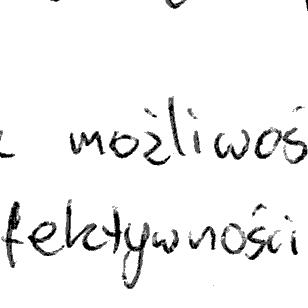 możliwoś
fektywności